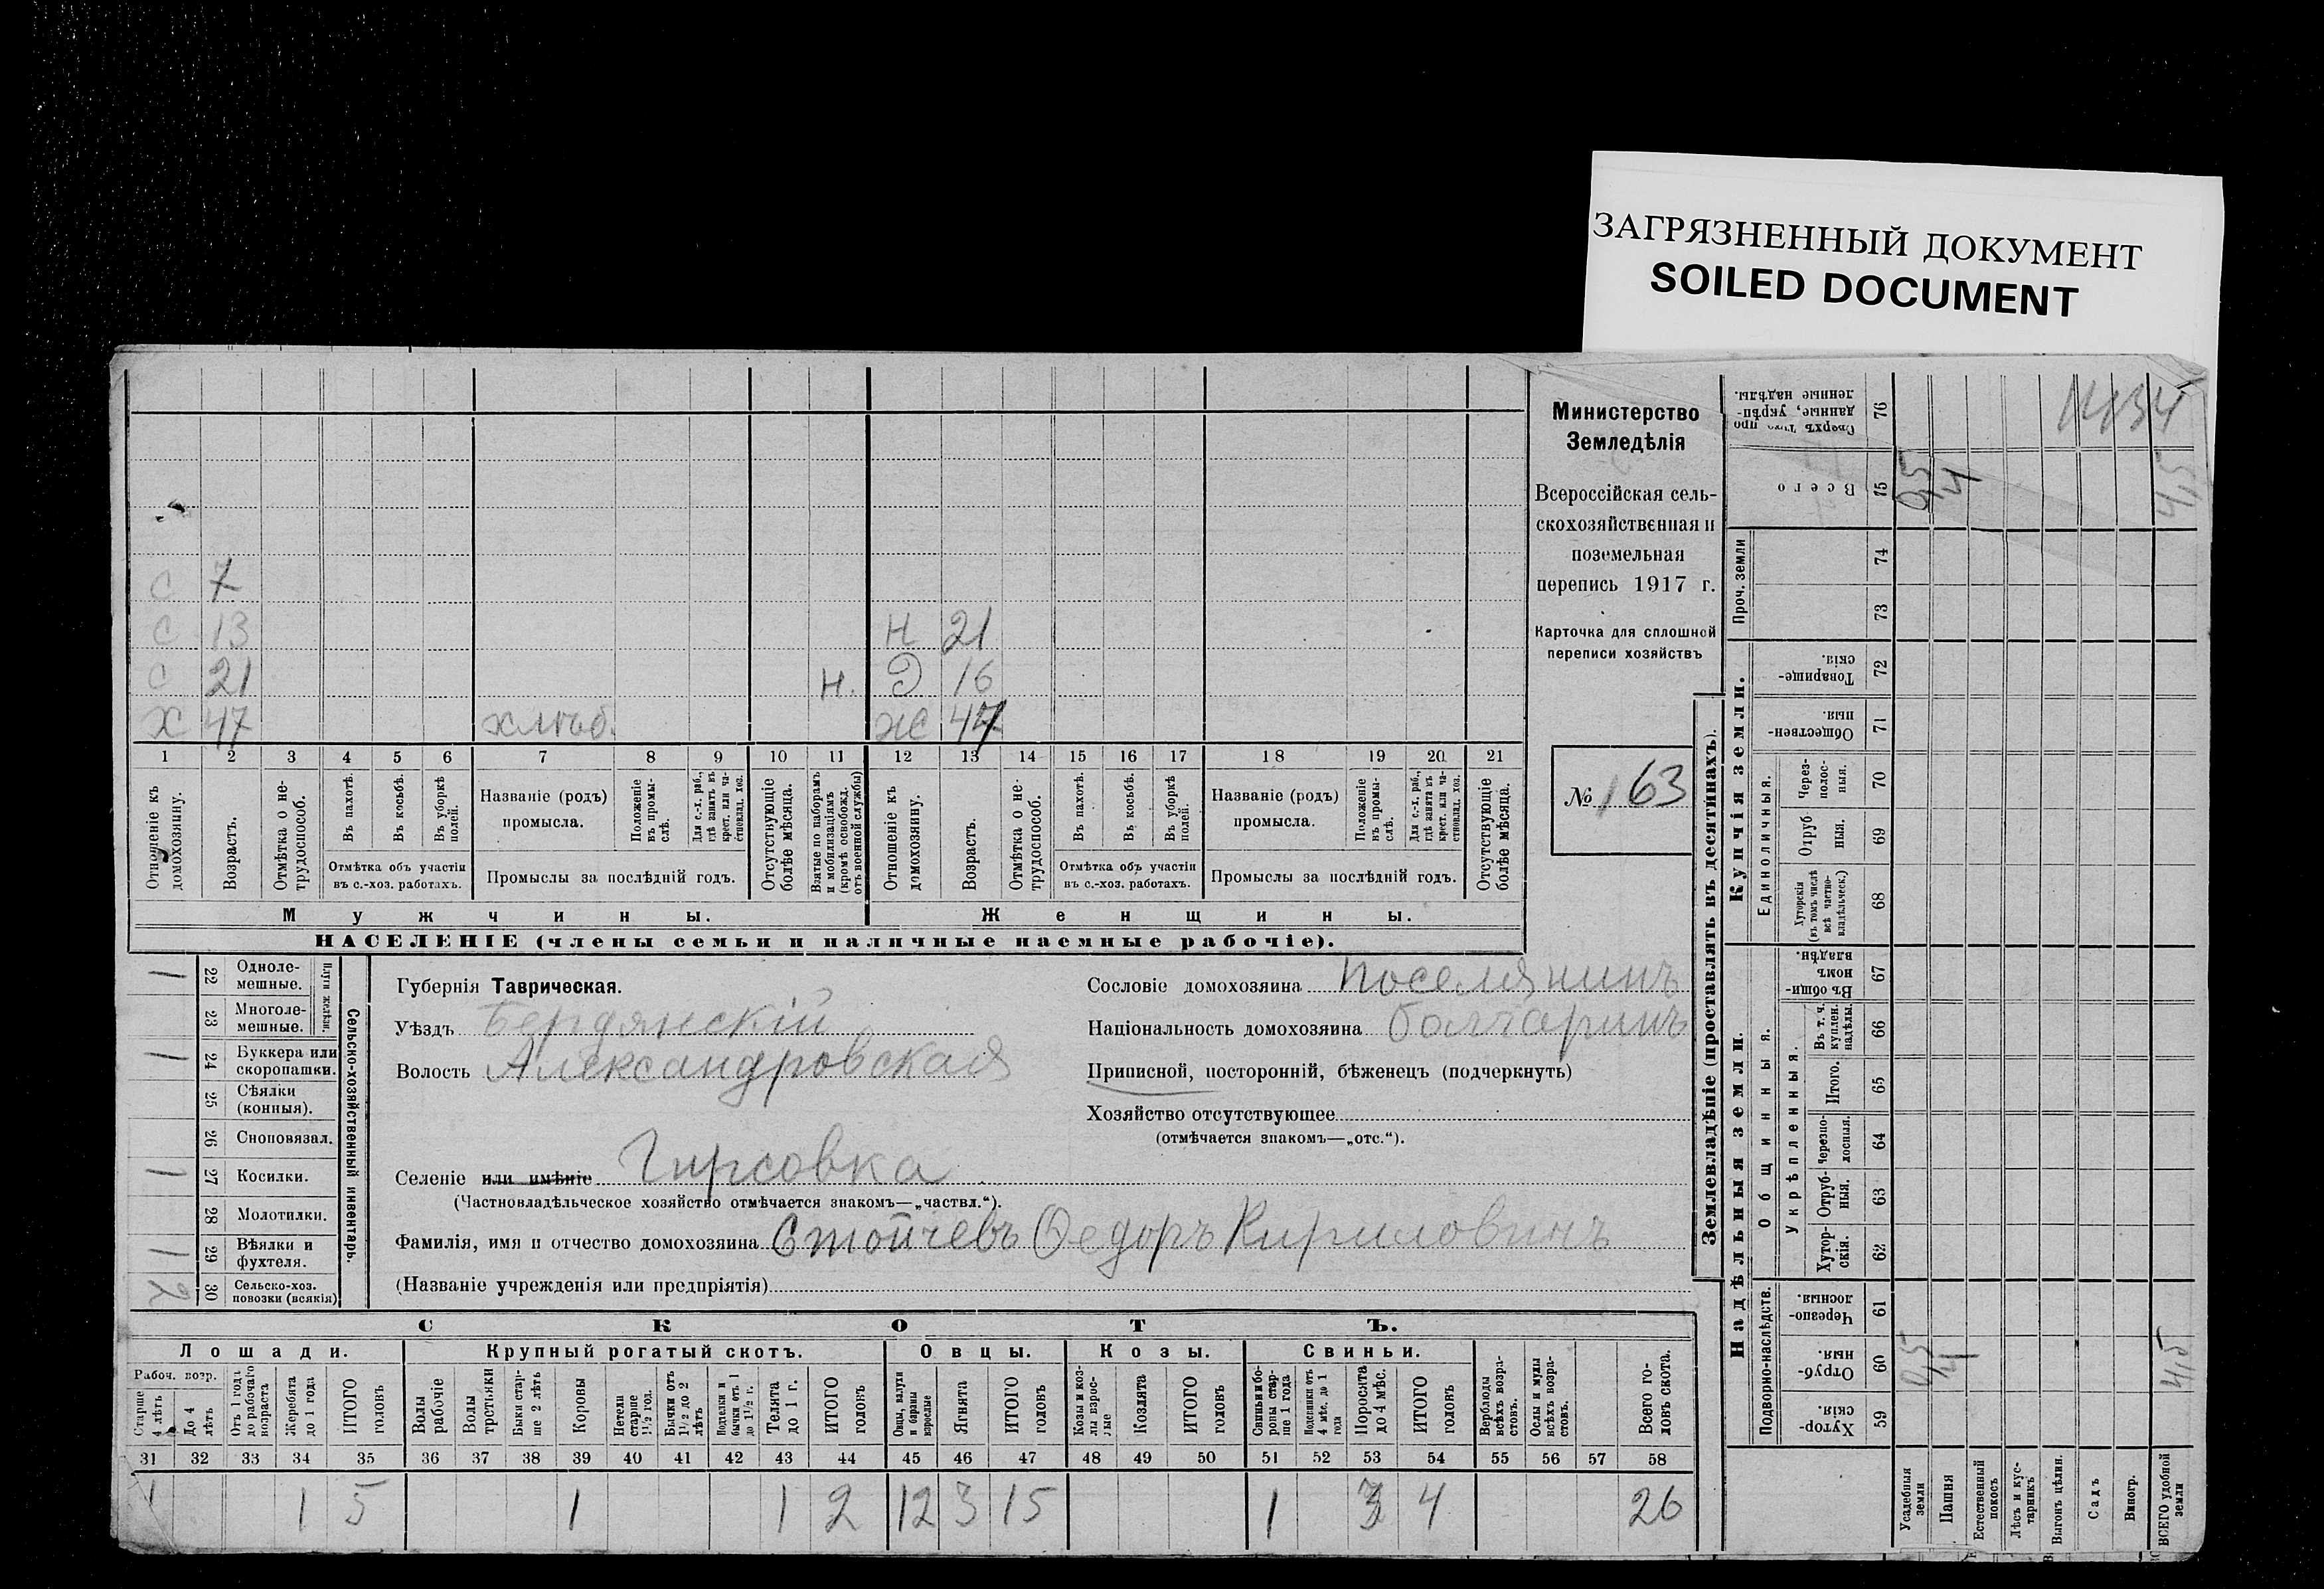 ЗАГРЯЗНЕННЫЙ ДОКУМЕНТ
SOILED DOCUMENT
Министерство
Земледѣлія
Всероссійская сель-
скохозяйственная и
поземельная
перепись 1917 г.
Карточка для сплошной
переписи хозяйствъ
№ 163
С 7
С 13 Н 21
С 21 Н. Д 16
Х 47 хлѣб. Ж 47
1 2 3 4 5 6 7 8 9 10 11 12 13 14 15 16 17 18 19 20 21
Отношеніе къ домохозяину.
Возрастъ.
Отмѣтка о не-трудоспособ.
Въ пахотѣ.
Въ косьбѣ.
Въ уборкѣ полей.
Отмѣтка объ участіи
въ с.-хоз. работахъ.
Названіе (родъ)
промысла.
Положеніе въ промы-слѣ.
Для с.-х. раб., гдѣ занятъ въ крест. или ча-стновлад. хоз.
Промыслы за послѣдній годъ.
Отсутствующіе болѣе мѣсяца.
Взятые по наборамъ и мобилизаціямъ (кромѣ освобожд. отъ военной службы)
Отношеніе къ домохозяину.
Возрастъ.
Отмѣтка о не-трудоспособ.
Въ пахотѣ.
Въ косьбѣ.
Въ уборкѣ полей.
Отмѣтка объ участіи
въ с.-хоз. работахъ.
Названіе (родъ)
промысла.
Положеніе въ промы-слѣ.
Для с.-х. раб., гдѣ занята въ крест. или ча-стновлад. хоз.
Промыслы за послѣдній годъ.
Отсутствующіе болѣе мѣсяца.
Мужчины. Женщины.
НАСЕЛЕНІЕ (члены семьи и наличные наемные рабочіе).
Сельско-хозяйственный инвентарь.
Плуги желѣзн.
1 22 Одноле-мешные.
23 Многоле-мешные.
1 24 Буккера или скоропашки.
25 Сѣялки (конныя).
26 Сноповязал.
1 27 Косилки.
28 Молотилки.
1 29 Вѣялки и фухтеля.
30 Сельско-хоз. повозки (всякія)
Губернія Таврическая.
Уѣздъ Бердянскій
Волость Александровская
Селеніе или имѣніе Гирсовка
(Частновладѣльческое хозяйство отмѣчается знакомъ—„частвл.“).
Фамилія, имя и отчество домохозяина Стойчевъ Ѳедоръ Кириловичъ
(Названіе учрежденія или предпріятія)
Сословіе домохозяина поселянинъ
Національность домохозяина болгаринъ
Приписной, посторонній, бѣженецъ (подчеркнуть)
Хозяйство отсутствующее
(отмѣчается знакомъ—„отс.“).
СКОТЪ.
Лошади. Крупный рогатый скотъ. Овцы. Козы. Свиньи.
Рабоч. возр.
Старше 4 лѣтъ
До 4 лѣтъ
Отъ 1 года до рабочаго возраста
Жеребята до 1 года
ИТОГО головъ
Волы рабочіе
Волы третьяки
Быки стар-ше 2 лѣтъ
Коровы
Нетели старше 1½ год.
Бычки отъ 1½ до 2 лѣтъ
Подтелки и бычки отъ 1 до 1½ г.
Телята до 1 г.
ИТОГО головъ
Овцы, валухи и бараны взрослые
Ягнята
ИТОГО головъ
Козы и коз-лы взрос-лые
Козлята
ИТОГО головъ
Свиньи и бо-ровы стар-ше 1 года
Подсвинки отъ 4 мѣс. до 1 года
Поросята до 4 мѣс.
ИТОГО головъ
Верблюды всѣхъ возра-стовъ.
Ослы и мулы всѣхъ возра-стовъ.
Всего го-ловъ скота.
31 32 33 34 35 36 37 38 39 40 41 42 43 44 45 46 47 48 49 50 51 52 53 54 55 56 57 58
1 1 5 1 1 2 12 3 15 1 3 4 26
Землевладѣніе (проставлять въ десятинахъ).
Надѣльныя земли.
Подворно-наслѣдств.
Хутор-скія. 59
Отруб-ныя. 60 0,5 4 4,5
Черезпо-лосныя. 61
Общинныя.
Укрѣпленныя.
Хутор-скія. 62
Отруб-ныя. 63
Черезпо-лосныя. 64
Итого. 65
Въ т. ч. куплен. надѣлы. 66
Въ общи-номъ владѣн. 67
Купчія земли.
Единоличныя.
Хуторскія (въ томъ числѣ всѣ частно-владѣльческ.) 68
Отруб-ныя. 69
Через-полос-ныя. 70
Обществен-ныя. 71
Товарище-скія. 72
Проч. земли
73
74
Всего 75 0,5 4 4,5
Сверхъ того про-данные, укрѣп-ленные надѣлы. 76
Усадебныя земли
Пашня
Естественный покосъ
Лѣсъ и кус-тарникъ
Выгонъ цѣлин.
Садъ
Виногр.
ВСЕГО удобной земли